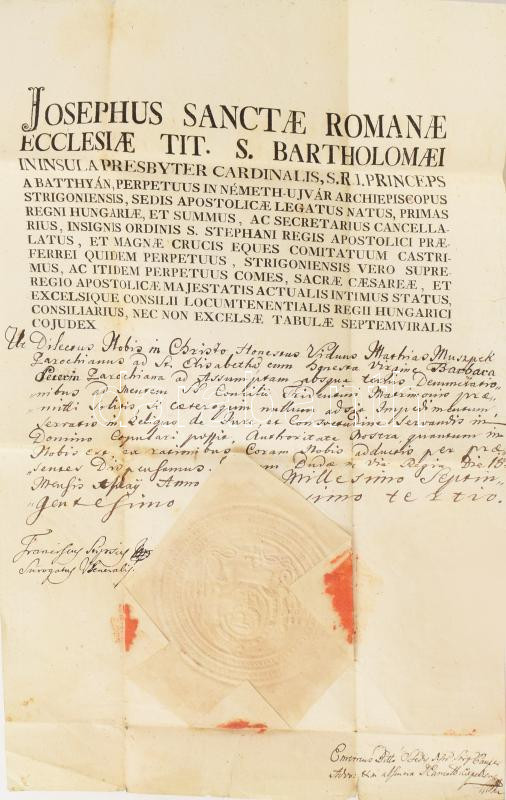 JOSEPHUS SANCTÆ ROMANÆ
ECCLESIÆ TIT. S. BARTHOLOMÆI
IN INSULA PRESBYTER CARDINALIS, S. R. I. PRINCEPS
A BATTHYÁN, PERPETUUS IN NÉMETH-UJVÁR ARCHIEPISCOPUS
STRIGONIENSIS, SEDIS APOSTOLICÆ LEGATUS NATUS, PRIMAS
REGNI HUNGARIÆ, ET SUMMUS, AC SECRETARIUS CANCELLA-
RIUS, INSIGNIS ORDINIS S. STEPHANI REGIS APOSTOLICI PRÆ-
LATUS, ET MAGNÆ CRUCIS EQUES COMITATUUM CASTRI-
FERREI QUIDEM PERPETUUS, STRIGONIENSIS VERO SUPRE-
MUS, AC ITIDEM PERPETUUS COMES, SACRÆ CÆSAREÆ, ET
REGIO APOSTOLICÆ MAJESTATIS ACTUALIS INTIMUS STATUS,
EXCELSIQUE CONSILII LOCUMTENENTIALIS REGII HUNGARICI
CONSILIARIUS, NEC NON EXCELSÆ TABULÆ SEPTEMVIRALIS
COJUDEX
Ut Dilectus Nobis in Christo Honestus Viduus Mathias
Parochianus ad St. Elisabetham cum honesta Virgine Barbara
Parochiana ad Assumptam absque ternis Denunciatio-
nibus ad Mentem SS. Concilii Tridentini Matrimonio præ-
mitti solitis, si cæteroquin nullum adsit Impedimentum,
Servatis in Reliquo de Jure, et Consvetudine Servandis in
Domino Copulari possit, Authoritate Nostra quantum in
Nobis est, ex rationibus Coram Nobis adductis per præ-
sentes Dispensamus. Budæ in Via Regia Die 18
Mensis Maÿ Anno Millesimo Septin-
gentesimo simo tertio.
Franciscus
Surogatus Generalis.